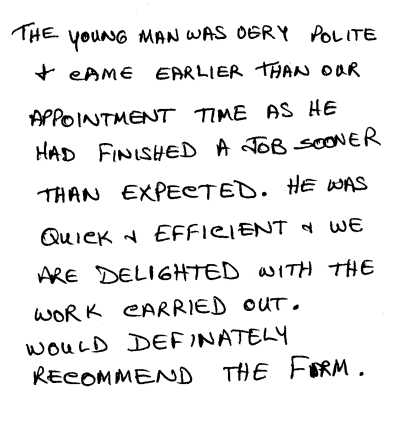 THE YOUNG MAN WAS VERY POLITE
+ CAME EARLIER THAN OUR
APPOINTMENT TIME AS HE
HAD FINISHED A JOB SOONER
THAN EXPECTED. HE WAS
QUICK & EFFICIENT & WE
ARE DELIGHTED WITH THE
WORK CARRIED OUT.
WOULD DEFINATELY
RECOMMEND THE FIRM.